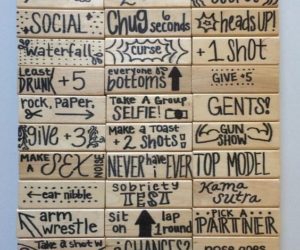 SOCIAL
Chug seconds
heads up!
waterfall
curse
+1 shot
Least DRUNK +5
everyone bottoms
GIVE +5
rock, paper,
Take A Group SELFIE!
GENTS!
give +3
Make a Toast +2 Shots!
GUN SHOW
MAKE A SEX NOISE
NEVER have EVER
TOP MODEL
ear nibble
sobriety TEST
Kama Sutra
arm wrestle
sit on lap 1 round
PICK A PARTNER
Take a shot w
CHANCES?
nose goes